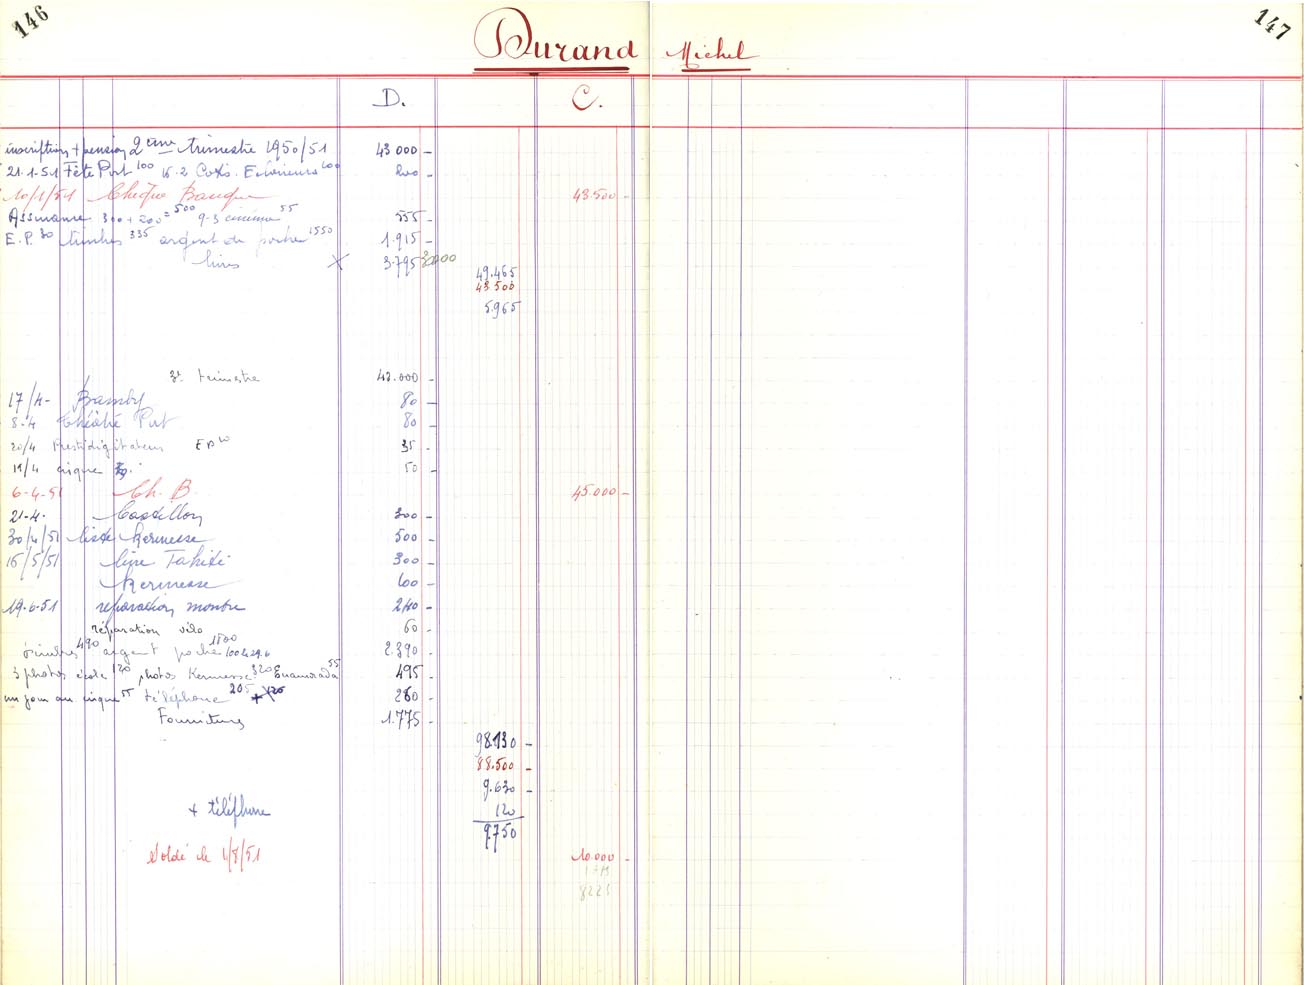 146
147
Durand Michel
D. C.
inscription + pension 2ème trimestre 1950/51 43 000 -
21.1.51 Fête Port 100 16.2 Cotis. Extérieurs 100 200 -
10/1/51 Chèque Banque 43.500 -
Assurance 300 + 200 = 500 9-3 cinéma 55 555 -
E.P. 30 timbres 335 argent de poche 1550 1.915 -
livres X 3.795
49.465
43 500
5.965
3e trimestre 42.000 -
17/4- Bamby 80 -
8-4 théâtre Port 80 -
20/4 Prestidigitateur EP 35 -
19/4 cirque 50 -
6-4-51 Ch. B. 45.000 -
21-4- Castillon 300 -
30/4/51 liste kermesse 500 -
16/5/51 livre Tahiti 300 -
kermesse 600 -
19-6-51 réparation montre 240 -
réparation vélo 60 -
timbres 490 argent poche 1800 100 le 29.6 2.390 -
3 photos école 120 photos Kermesse 320 Enamorada 55 495 -
un jour au cirque 55 téléphone 205 260 -
Fournitures 1.775 -
98.130 -
88.500 -
9.630 -
+ téléphone 120
9.750
Soldé le 1/8/51 10.000 -